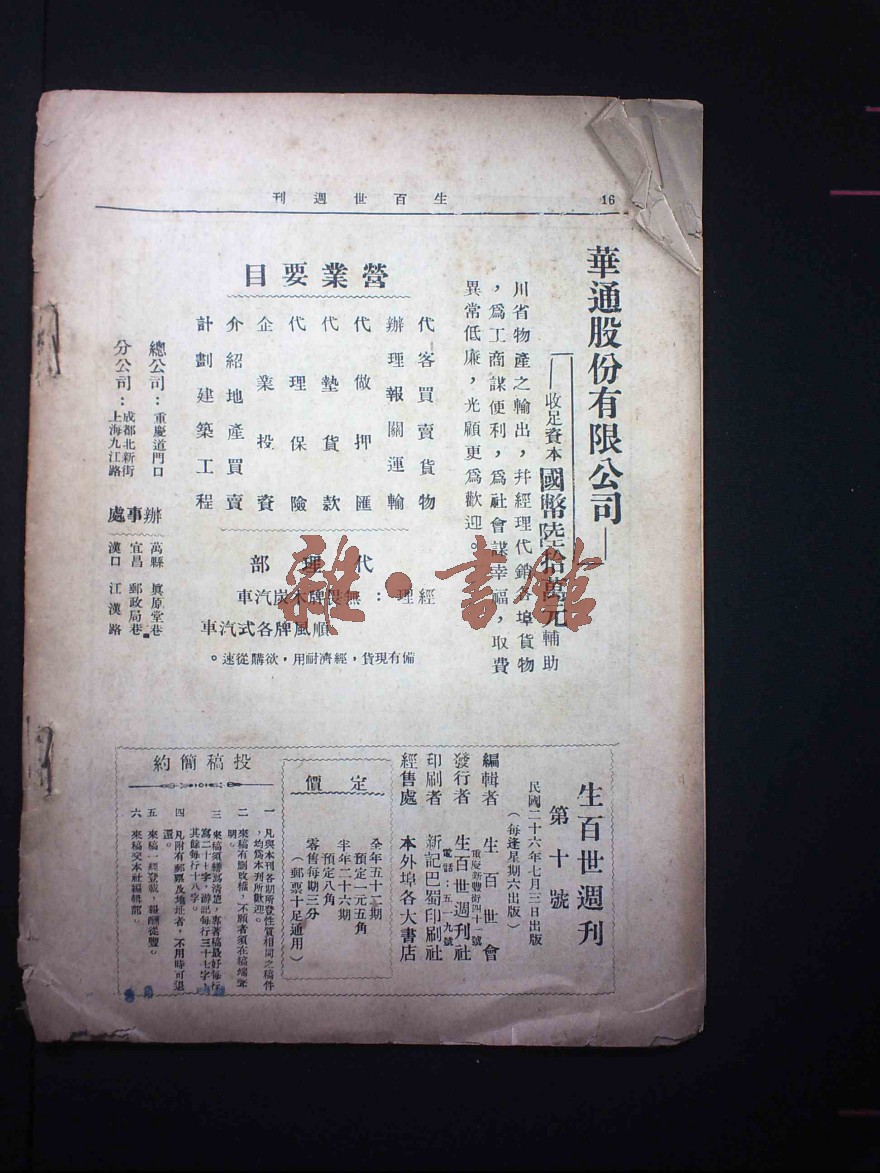 生百世週刊
16
華通股份有限公司
收足資本國幣陸拾萬元輔助
川省物產之輸出，幷經理代銷各埠貨物
，爲工商謀便利，爲社會謀幸福，取費
異常低廉，光顧更爲歡迎。
營業要目
代客買賣貨物
辦理報關運輸
代做押匯
代墊貨款
代理保險
企業投資
介紹地產買賣
計劃建築工程
代理部
經理：無畏牌木炭汽車
順風牌各式汽車
備有現貨，經濟耐用，欲購從速。
總公司：重慶道門口
分公司：成都北新街
上海九江路
辦事處
萬縣 眞原堂巷
宜昌 郵政局巷
漢口 江漢路
雜·書館
生百世週刊
第十號
民國二十六年七月三日出版
（每逢星期六出版）
編輯者 生百世會
發行者 生百世週刊社
重慶新豐街四十一號
電話：五一九號
印刷者 新記巴蜀印刷社
經售處 本外埠各大書店
定價
全年五十二期
預定一元五角
半年二十六期
預定八角
零售每期三分
（郵票十足通用）
投稿簡約
一 凡與本刊各期所登性質相同之稿件
，均爲本刊所歡迎。
二 來稿有刪改權，不願者須在稿端聲
明。
三 來稿須繕寫清楚，專著稿最好每行
寫二十七字，游記每行三十七字，
其餘每行十八字。
四 凡附有郵票及地址者，不用時可退
還。
五 來稿一經登載，報酬從豐。
六 來稿交本社編輯部。